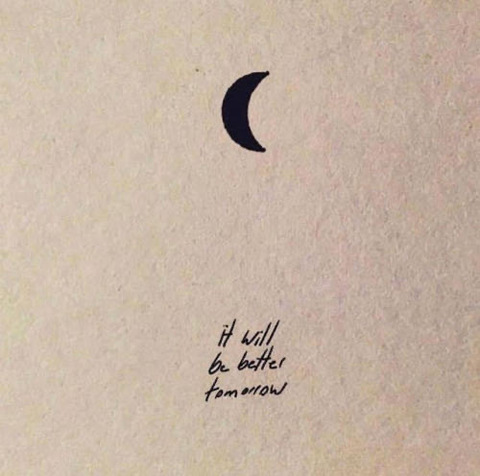 it will
be better
tomorrow